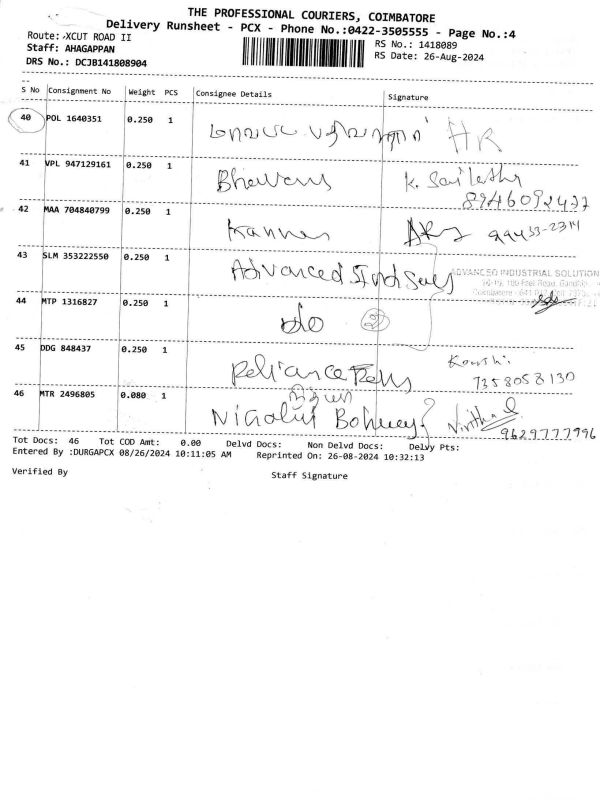 THE PROFESSIONAL COURIERS, COIMBATORE
Delivery Runsheet - PCX - Phone No.:0422-3505555 - Page No.:4
Route: XCUT ROAD II
RS No.: 1418089
Staff: AHAGAPPAN
RS Date: 26-Aug-2024
DRS No.: DCJB141808904
S No Consignment No Weight PCS Consignee Details Signature
40 POL 1640351 0.250 1 HR
41 VPL 947129161 0.250 1 Bhavans K.
8946092437
42 MAA 704840799 0.250 1 Kannan 99433-2314
43 SLM 353222550 0.250 1 Advanced Ind Sales ADVANCED INDUSTRIAL SOLUTION
44 MTP 1316827 0.250 1 do 2
45 DDG 848437 0.250 1 Reliance
7358058130
46 MTR 2496805 0.080 1
9629777996
Tot Docs: 46 Tot COD Amt: 0.00 Delvd Docs: Non Delvd Docs: Delvy Pts:
Entered By :DURGAPCX 08/26/2024 10:11:05 AM Reprinted On: 26-08-2024 10:32:13
Verified By Staff Signature